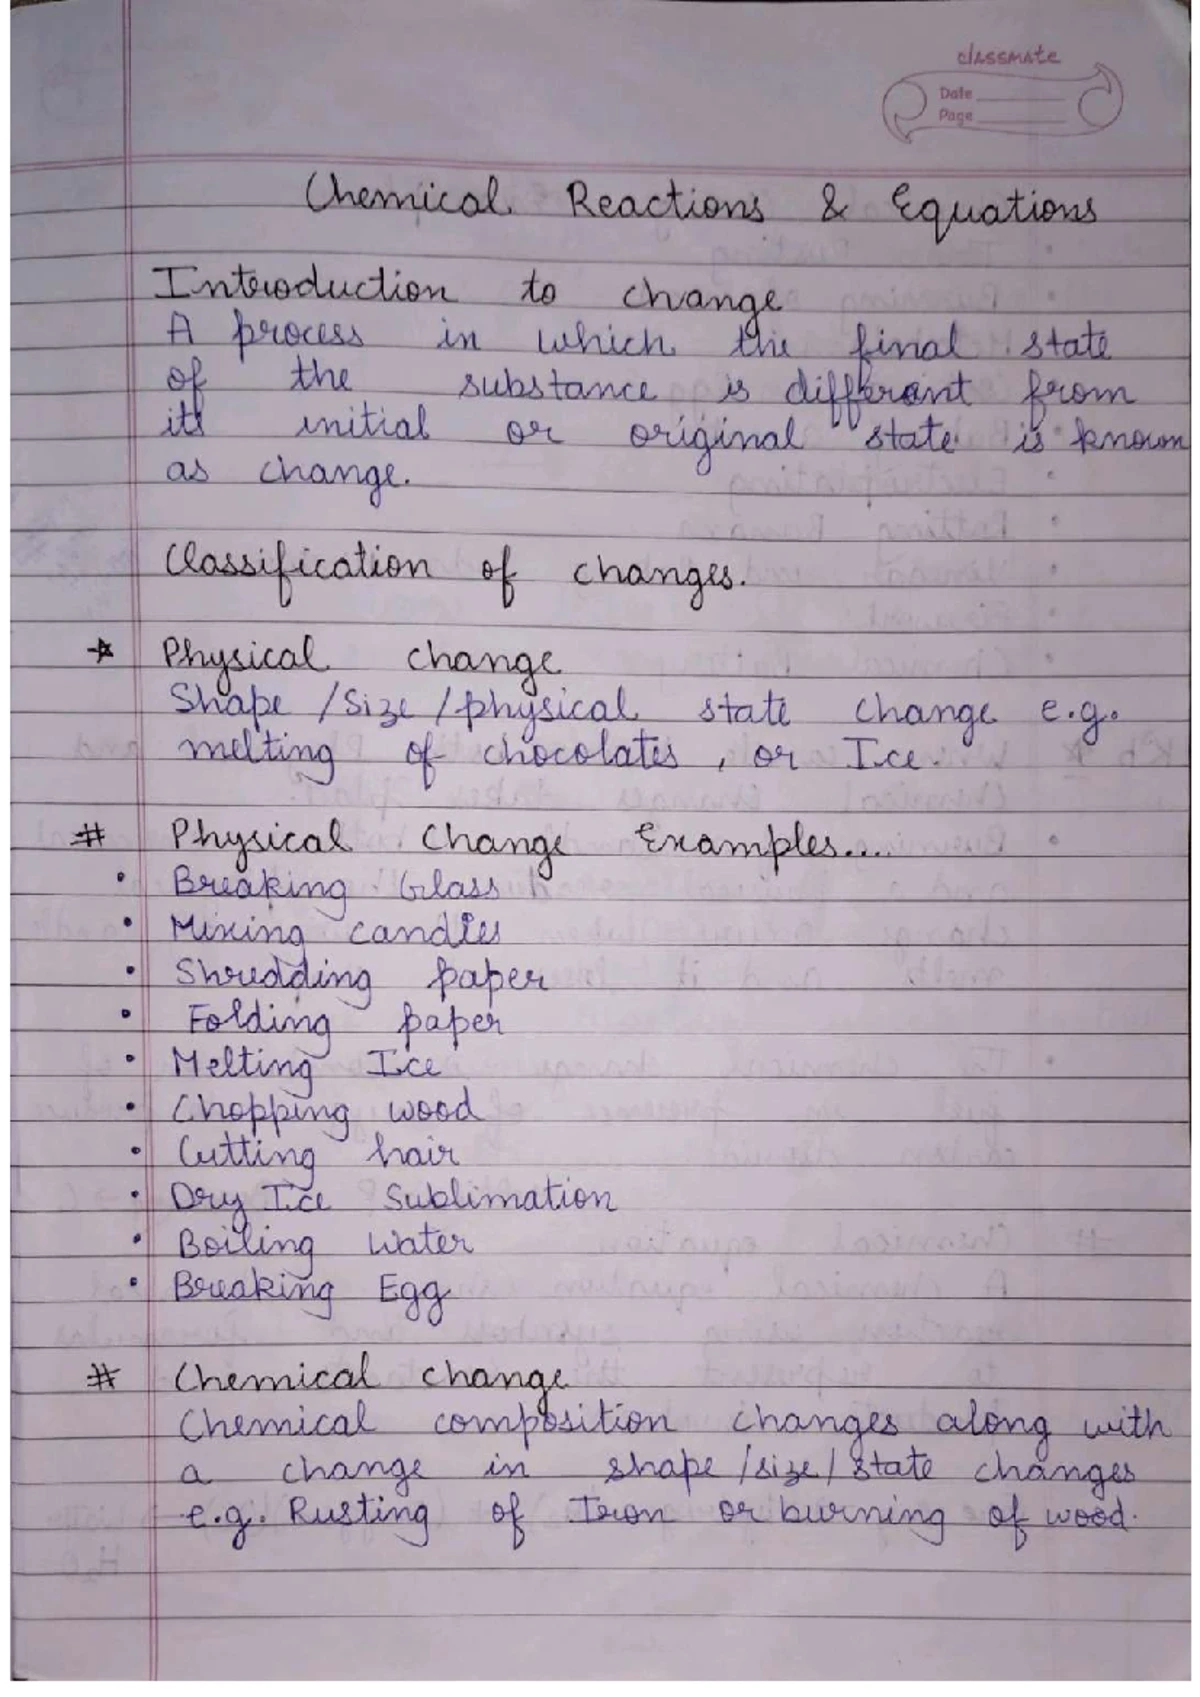 classmate
Date
Page
Chemical Reactions & Equations
Introduction to change
A process in which the final state
of the substance is different from
its initial or original state is known
as change.
Classification of changes.
Physical change
Shape /Size /physical state change e.g.
melting of chocolates, or Ice.
# Physical Change Examples....
• Breaking Glass
• Mixing candies
• Shredding paper
• Folding paper
• Melting Ice
• Chopping wood
• Cutting hair
• Dry Ice Sublimation
• Boiling Water
• Breaking Egg
# Chemical change
Chemical composition changes along with
a change in shape /size/ state changes
e.g. Rusting of Iron or burning of wood.